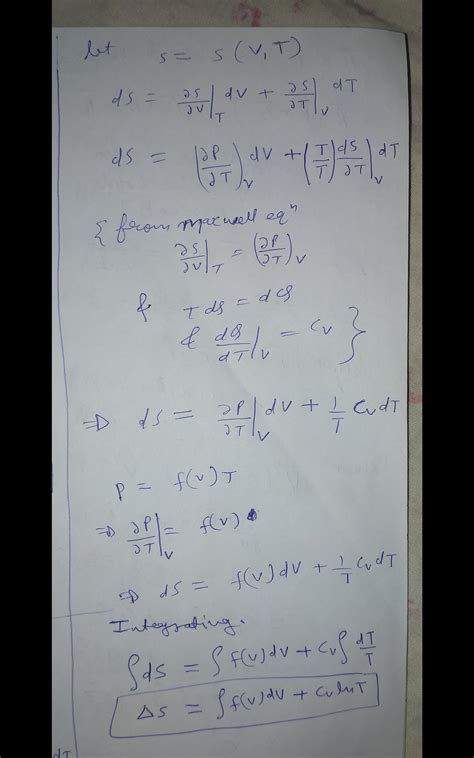 let s = s (V, T)
ds = ∂s/∂V|_T dV + ∂s/∂T|_V dT
ds = (∂P/∂T)_V dV + (T/T) ds/∂T)_V dT
{ from maxwell eqⁿ
∂s/∂V|_T = (∂P/∂T)_V
& T ds = dQ
& dQ/dT|_V = Cv }
⇒ ds = ∂P/∂T|_V dV + 1/T Cv dT
P = f(v) T
⇒ ∂P/∂T|_V = f(v)
⇒ ds = f(v) dV + 1/T Cv dT
Integrating.
∫ds = ∫f(v) dV + Cv ∫ dT/T
Δs = ∫f(v) dV + Cv ln T
dT